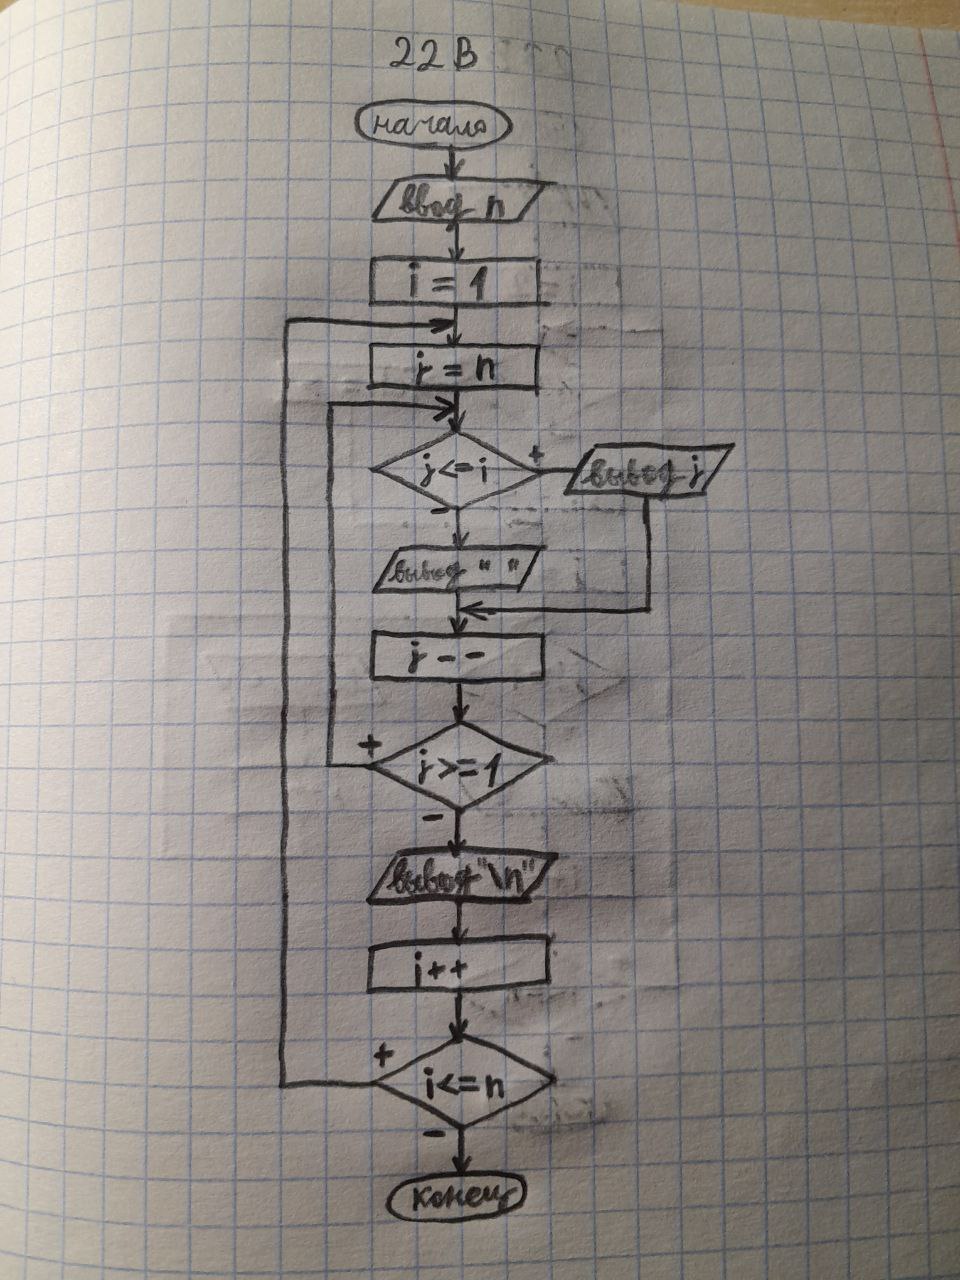 22 В
начало
ввод n
i = 1
j = n
j <= i
+
вывод j
-
вывод " "
j - -
+
j >= 1
-
вывод "\n"
i++
+
i <= n
-
конец